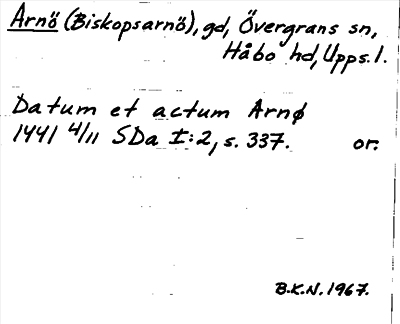 Arnö (Biskopsarnö), gd, Övergrans sn,
Håbo hd, Upps. l.
Datum et actum Arnø
1441 4/11 SDa I:2, s. 337. or.
B.K.N. 1967.